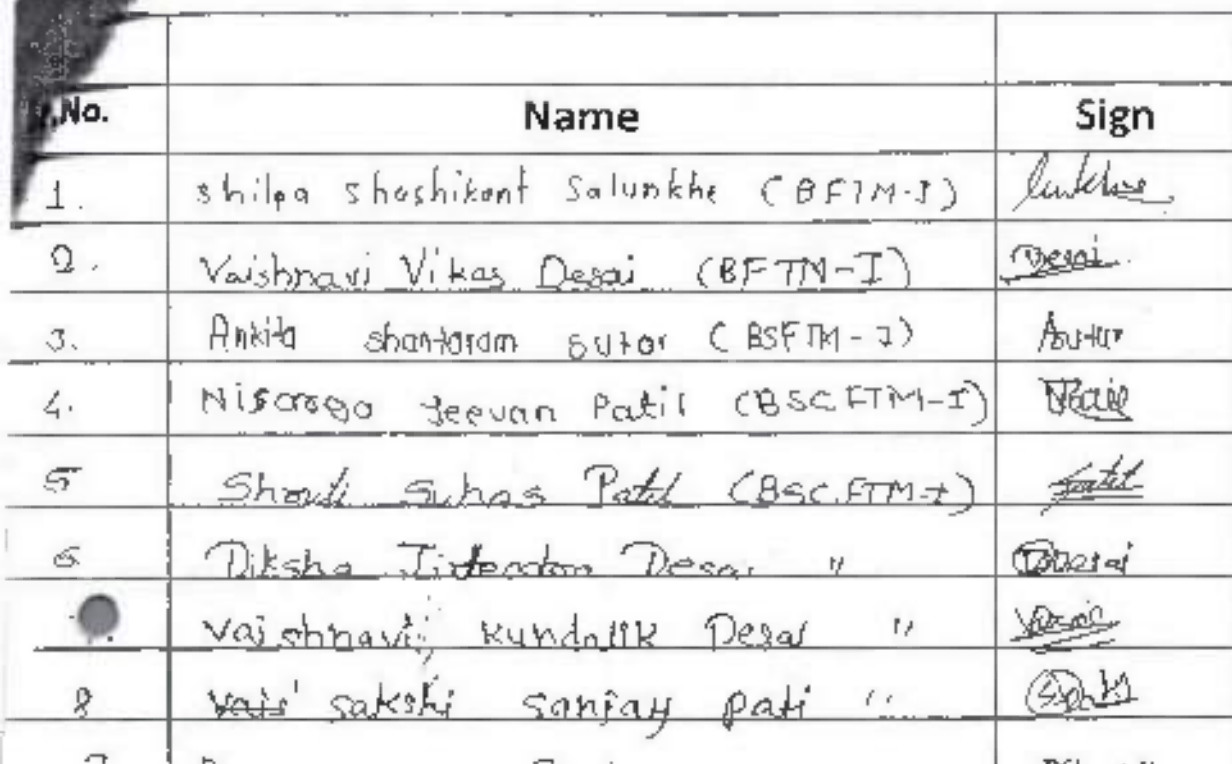 No. Name Sign
1. shilpa shashikant Salunkhe (BFTM-I)
2. Vaishnavi Vikas Desai (BFTM-I) Desai
3. Ankita shantaram sutar (BSFTM-I)
4. Nisarga Jeevan Patil (BSC FTM-I)
5 Suhas Patil (BSC.FTM-I) Patil
6 Diksha Desai " Desai
Vaishnavi kundalik Desai "
8 sakshi sanjay pati "